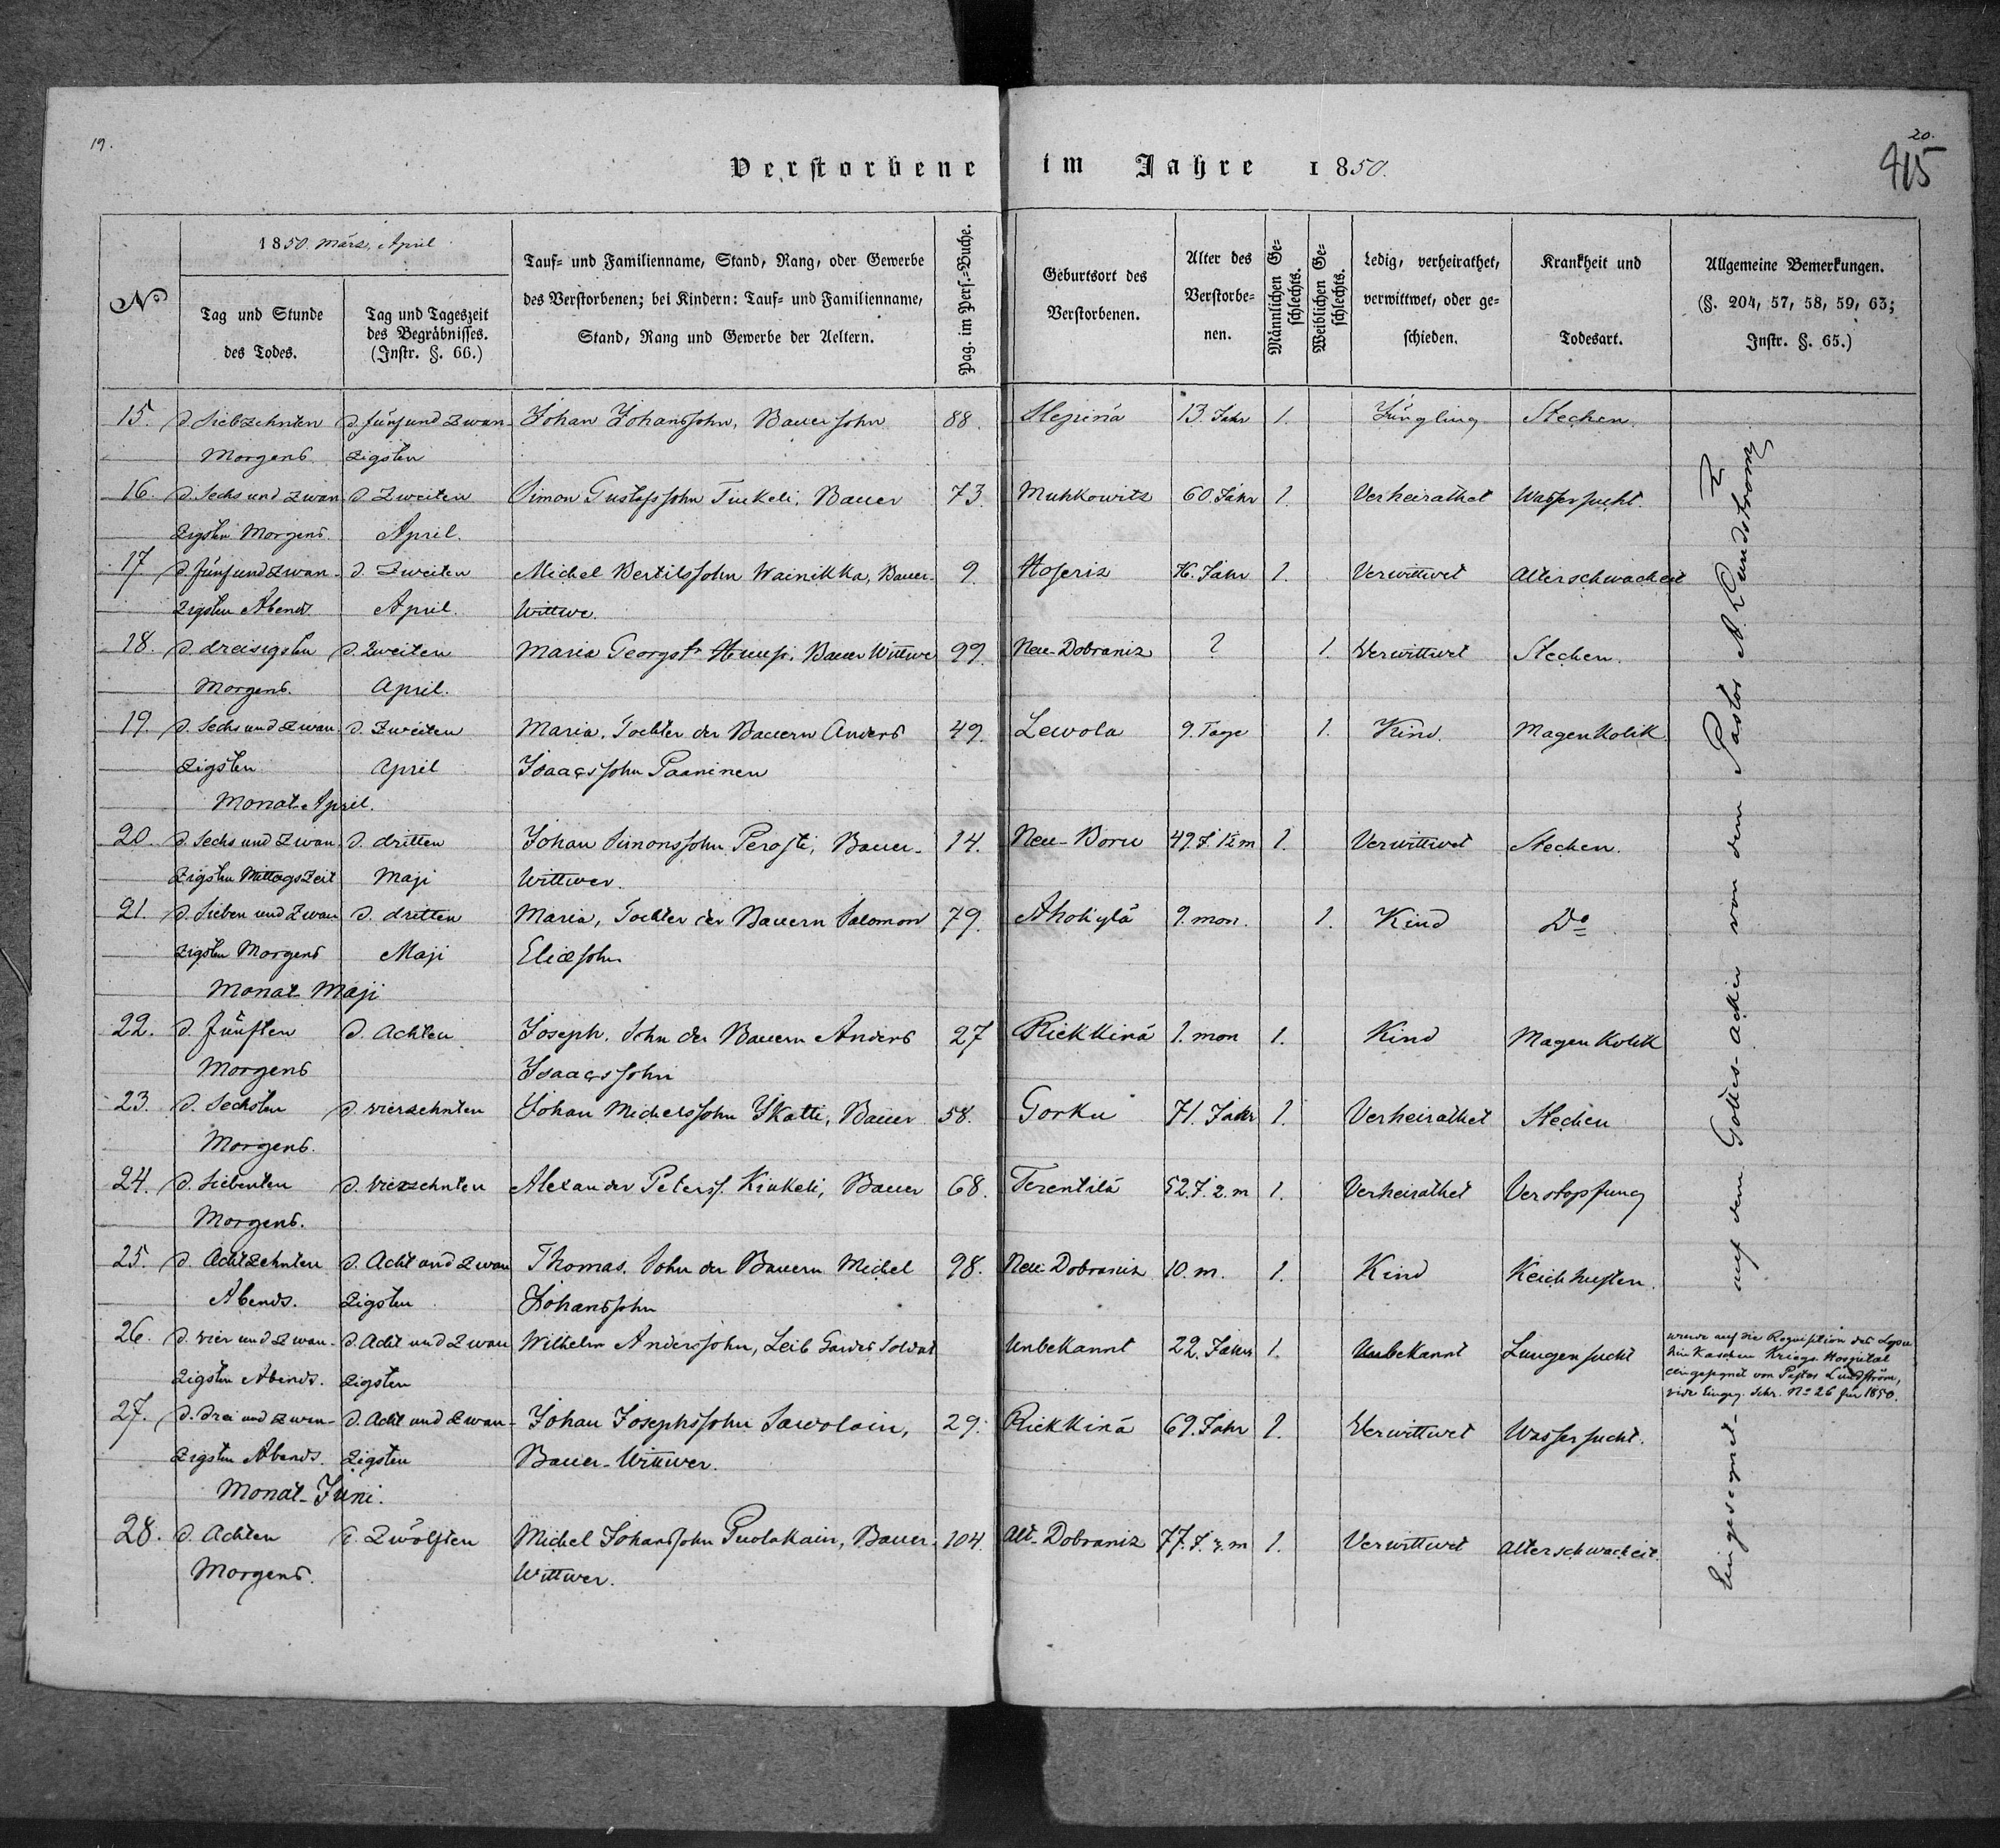 19.
20.
415
Verstorbene im Jahre 1850.
No
1850. März, April
Tag und Stunde des Todes.
Tag und Tageszeit des Begräbnisses. (Instr. §. 66.)
Tauf- und Familienname, Stand, Rang, oder Gewerbe des Verstorbenen; bei Kindern: Tauf- und Familienname, Stand, Rang und Gewerbe der Aeltern.
Pag. im Pers.-Buche.
Geburtsort des Verstorbenen.
Alter des Verstorbenen.
Männlichen Geschlechts.
Weiblichen Geschlechts.
Ledig, verheirathet, verwittwet, oder geschieden.
Krankheit und Todesart.
Allgemeine Bemerkungen. (§. 204, 57, 58, 59, 63; Instr. §. 65.)
15. d. Siebzehnten d. fünf und Zwan- Johan JohansSohn, Bauer Sohn 88. Slepinä 13. Jahr 1. Jüngling Stechen.
Morgens. zigsten
16. d. Sechs und Zwan d. Zweiten Simon Gustafssohn Tuckeli, Bauer 73. Muhkowitz 60. Jahr 1. Verheirathet Wassersucht.
zigsten Morgens. April.
17 d. fünf und Zwan- d. Zweiten Michel Bertilssohn Wainikka, Bauer- 9. 76. Jahr 1. Verwittwet Alterschwacheit
zigsten Abends April. Wittwe.
18. d. dreisigsten d. Zweiten Maria Georgstr Bauer Wittwe 99. Neu-Dobraniz ? 1. Verwittwet Stechen.
Morgens. April.
19. d. Sechs und Zwan d. Zweiten Maria, Tochter der Bauern Anders 49. Lewola 9. Tage 1. Kind. Magen Kolik
zigsten April Isaacssohn Paaninen
Monat April.
20. d. Sechs und Zwan d. dritten Johan Simonssohn Perosti, Bauer- 14. Neu-Boru 49. J. 1½ m 1. Verwittwet Stechen.
zigsten MittagsZeit Maji Wittwer.
21. d. Sieben und Zwan d. dritten Maria, Tochter der Bauern Salomon 79. Ahokylä 9. mon. 1. Kind Do
zigsten Morgens Maji Eliæsohn
Monat Maji
22. d. fünften d. Achten Joseph, Sohn der Bauern Anders 27 Riekkinä 1. mon 1. Kind Magen Kolik
Morgens Isaacssohn
23. d. Sechsten d. vierzehnten Johan Michelssohn Skatti, Bauer 58. Gorku 71. Jahr 1. Verheirathet Stechen
Morgens.
24. d. Siebenten d. vierzehnten Alexander Peterss. Kinkeli, Bauer 68. Terentilä 52. J. 2. m 1. Verheirathet Verstopfung
Morgens.
25. d. Achtzehnten d. Acht und Zwan Thomas, Sohn der Bauern Michel 98. Neu-Dobraniz 10. m. 1. Kind Keichhusten.
Abends. zigsten Johanssohn
26. d. vier und Zwan- d. Acht und Zwan Wilhelm Anderssohn, Leib Gardes Soldat Unbekannt 22. Jahr 1. Unbekannt Lungensucht
zigsten Abends. zigsten
wurde auf die Requisition des
Kriegs Hospital
eingesegnet von Pastor Lundström,
vide Eingeg. Schr. No 26 für 1850.
27. d. drei und Zwan- d. Acht und Zwan- Johan Josephssohn Sawolain, 29. Riekkinä 69. Jahr 1. Verwittwet Wassersucht.
zigsten Abends. zigsten Bauer-Wittwer.
Monat-Juni.
28. d. Achten d. Zwölften Michel Johanssohn Puolakain, Bauer- 104. Alt-Dobraniz 77. J. 3. m 1. Verwittwet Alterschwacheit.
Morgens. Wittwer.
Eingesegnet auf dem Gottes-Acker von dem Pastor A. Lundström